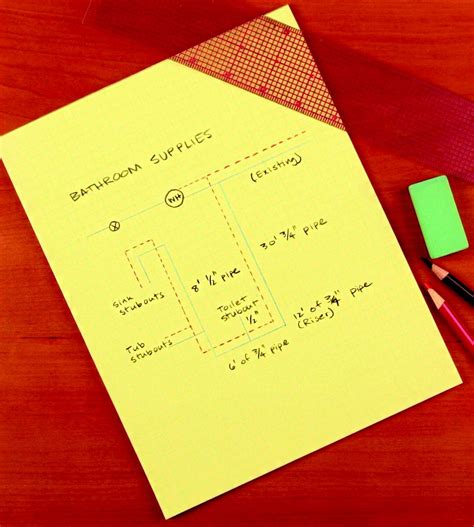 BATHROOM SUPPLIES
(Existing)
WH
X
30' 3/4" pipe
8' 1/2" pipe
sink
stubouts
Toilet
stubout
1/2"
12' of 3/4" pipe
(Riser)
Tub
stubouts
6' of 3/4" pipe